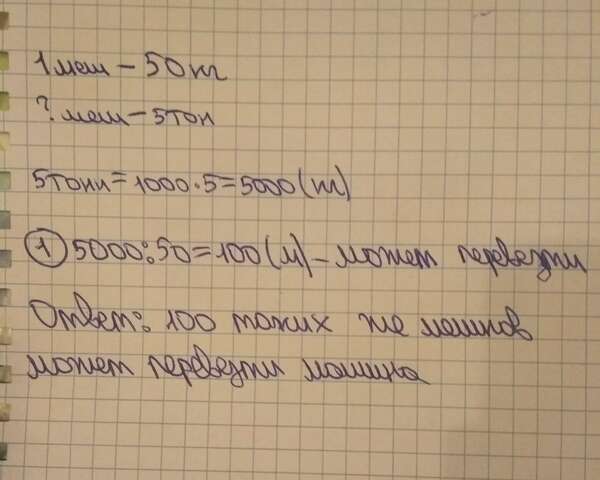 1 меш – 50 кг
? меш – 5 тон
5 тонн = 1000 · 5 = 5000 (кг)
① 5000 : 50 = 100 (м) – может перевезти
Ответ: 100 таких же мешков
может перевезти машина